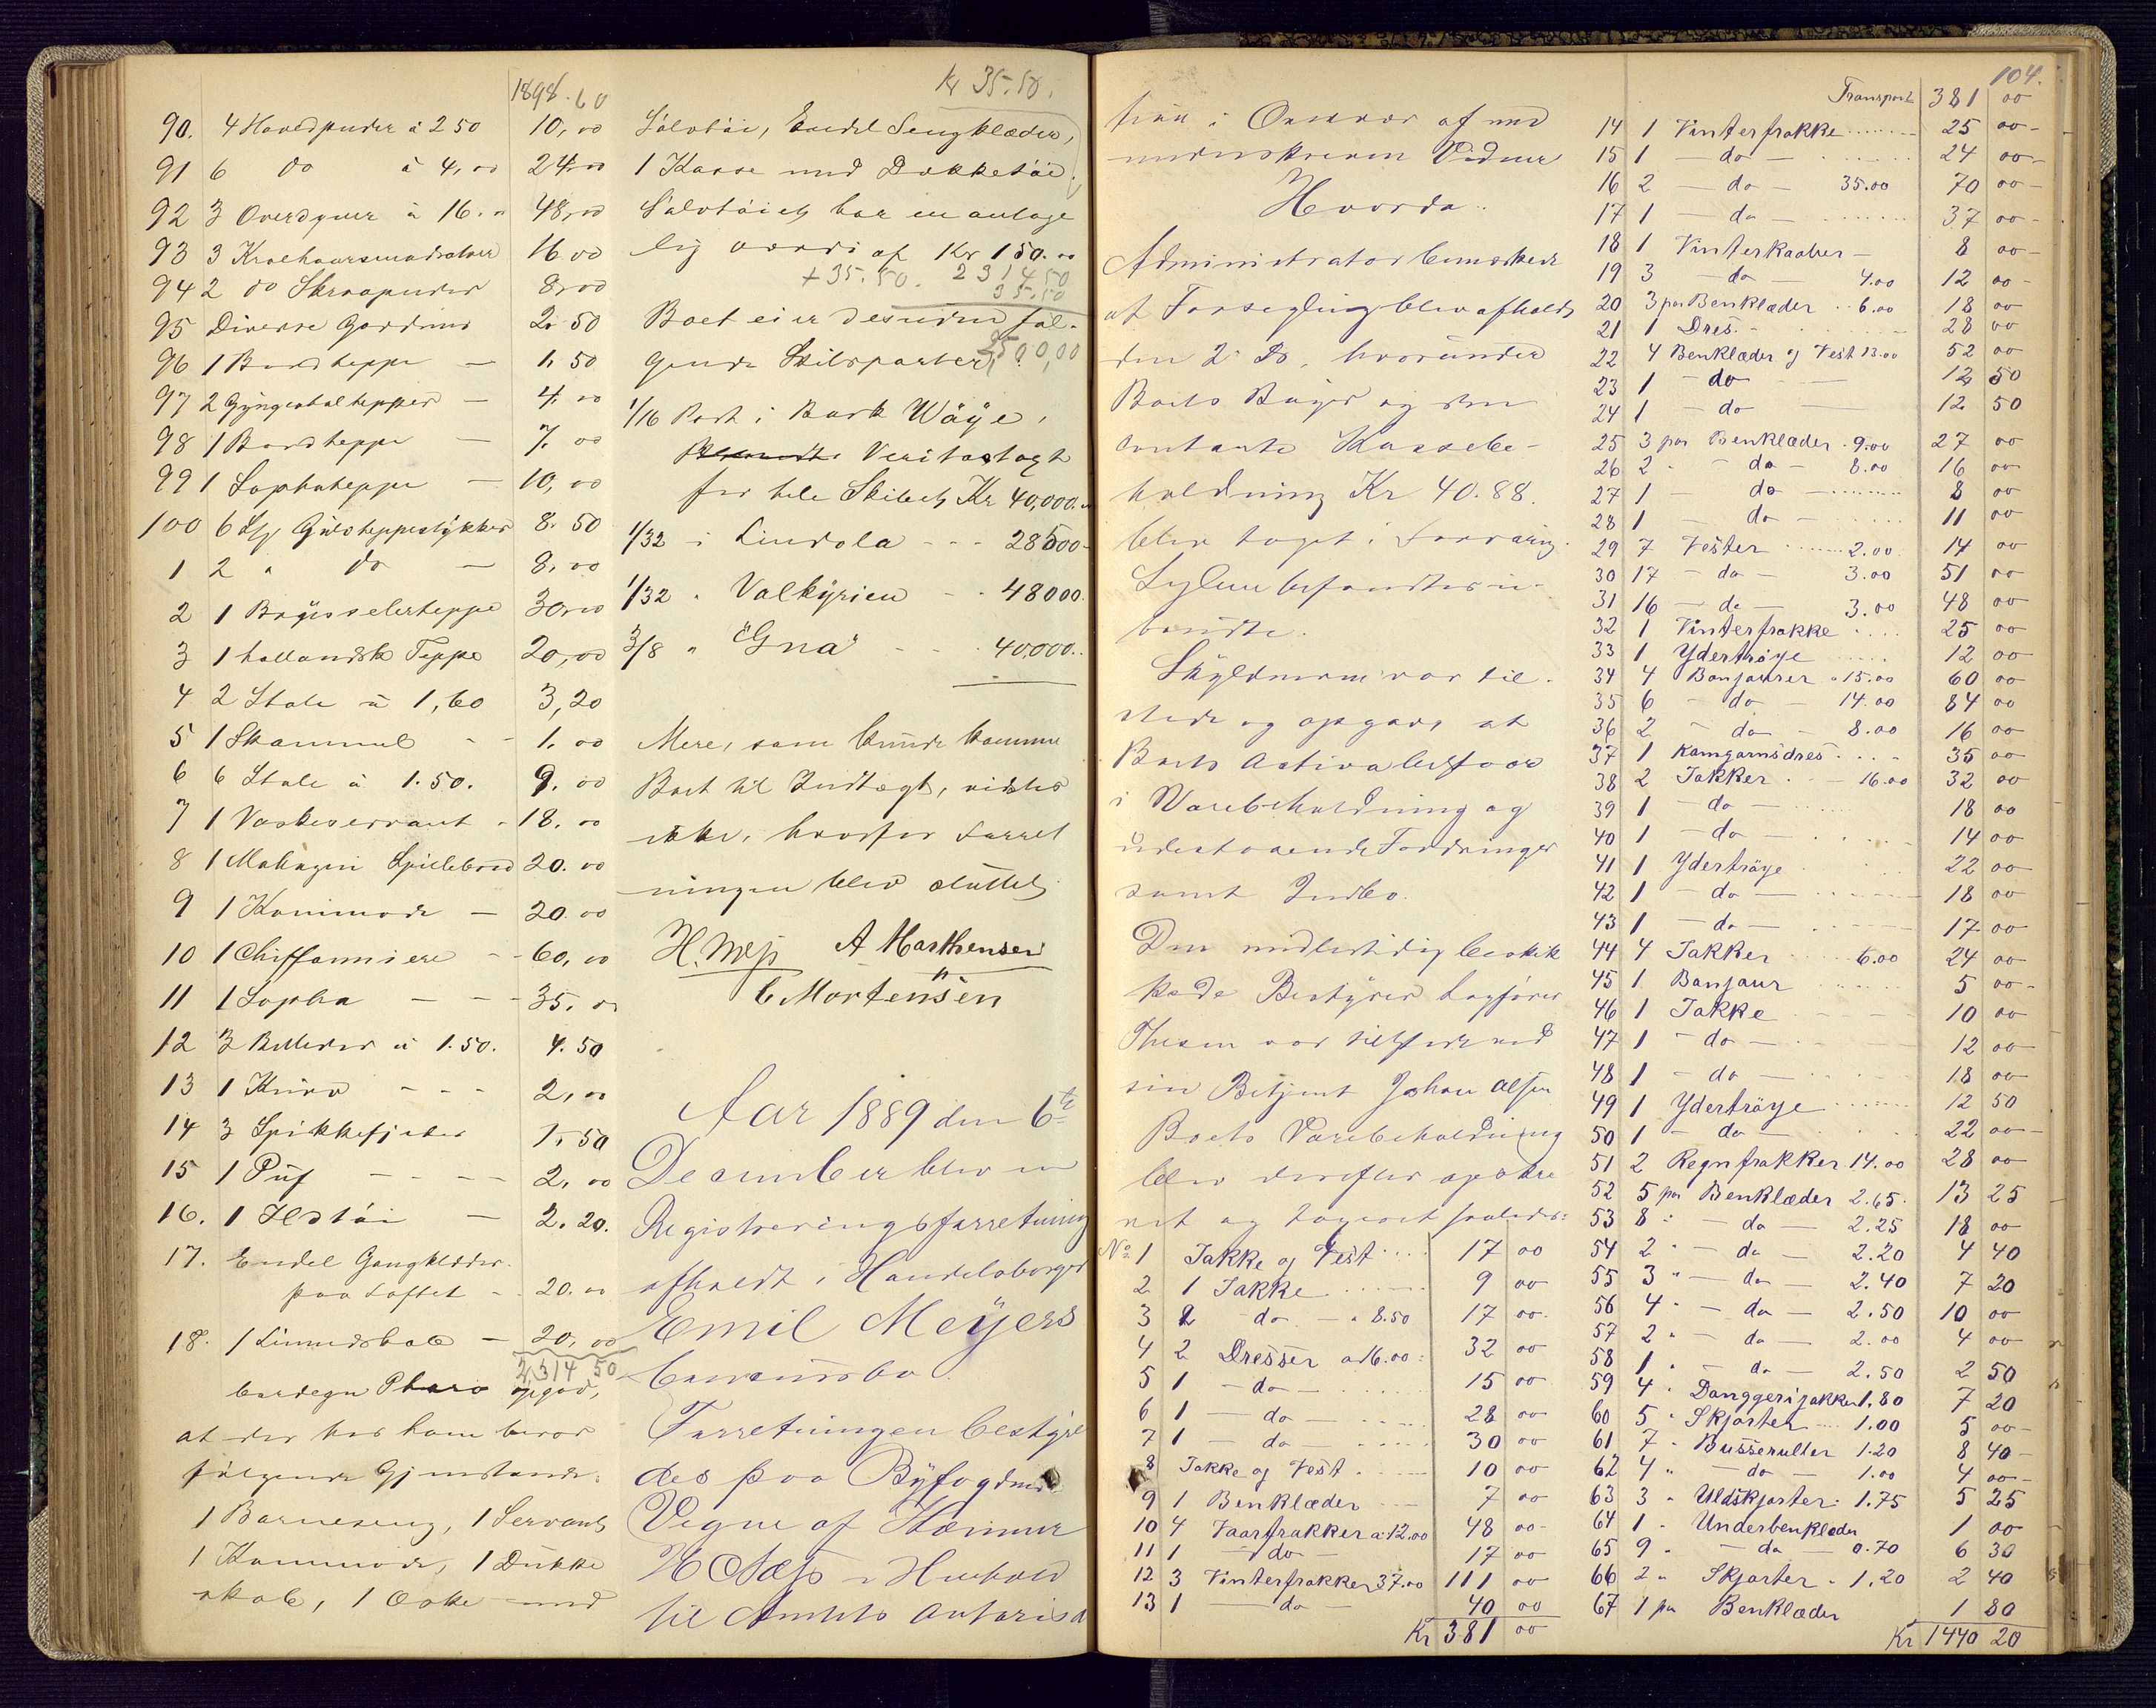 1898.60
90. 4 Hovedpuder à 2 50 10,00
91 6 do à 4,00 24,00
92 3 Overdyner à 16.„ 48,00
93 3 Krølhaarsmadratser 16.00
94 2 do Skraapuder 8,00
95 Diverse Gardiner 2.50
96 1 Bordteppe — 1.50
97 2 Gyngestoltepper — 4.00
98 1 Bordteppe — 7.00
99 1 Sophateppe — 10,00
100 6 Gulvteppestykker 8.50
1 2 „ do — 8.00
2 1 Brysselerteppe 30,00
3 1 hollandsk Teppe 20,00
4 2 Stole à 1,60 3,20
5 1 Skammel - - 1.00
6 6 Stole à 1.50. 9.00
7 1 Vaskeservant - 18.00
8 1 Mahogni Spillebord 20.00
9 1 Kommode — 20.00
10 1 Chiffonniere - - 60,00
11 1 Sopha — — - 35.00
12 3 Billeder à 1.50. 4.50
13 1 Kurv - - - 2,00
14 3 Spikkefjeler 1,50
15 1 Puf — - - - 2,00
16. 1 Ildtöi — 2.20.
17. Endel Gangklæder
paa Loftet - - 20.00
18. 1 Linnedskab — 20,00
2,314 50
Cardegn Pharo opgav,
at der hos ham beror
følgende Gjenstande:
1 Barneseng, 1 Servant,
1 Kommode, 1 Dukke
skab, 1 Æske med
Kr 35.50.
Sølvtöi, Endel Sengklæder,
1 Kasse med Dækketöi.
Sølvtöiet har en antage
lig værdi af Kr 150.00
+ 35.50. 2314 50
35.50
Boet eier desuden føl-
gende Skibsparter: 2500,00
1/16 Part i Bark Wäye,
Veritastagt
for hele Skibet, Kr 40,000.
1/32 - i Lindola - - - 28500-
1/32 „ Valkyrien - - 48000.
3/8 „ "Gna" - - - 40,000..
Mere, som kunde komme
Boet til Indtægt, vidstes
ikke, hvorfor Forret
ningen blev sluttet.
H. Næss A Marthensen
C Mortensen
Aar 1889 den 6te
December blev en
Registreringsforretning
afholdt i Handelsborger
Emil Meyers
Concursbo.
Forretningen bestyre
des paa Byfogdens
Vegne af
H Næss i Henhold
til Amtets Autorisa
104.
tion i Overvær af med
underskrevne Vidner
Hvorda:
Administrator bemærkede
at Forsegling blev afholdt
den 2. Ds, hvorunder
Boets Bøger og den
contante Kassebe-
holdning Kr 40.88.
blev taget i Forvaring.
Seglene befandtes u-
brudte.
Skyldneren var til-
stede og opgav, at
Boets Activa bestaar
i Varebeholdning og
udestaaende Fordringer
samt Indbo.
Den midlertidig beskik
kede Bestyrer Sagfører
Thesen var tilstede ved
sin Betjent Johan Olsen
Boets Varebeholdning
blev derefter opskre
vet og taxeret saaledes:
No 1 Jakke og Vest 17 00
2 1 Jakke 9 00
3 2 - do - à 8.50 17 00
4 2 Dresser à 16.00 32 00
5 1 - do - 15 00
6 1 - do - 28 00
7 1 - do - 30 00
8 Jakke og Vest 10 00
9 1 Benklæder 7 00
10 4 Vaarfrakker à 12.00 48 00
11 1 - do - 17 00
12 3 Vinterfrakker 37.00 111 00
13 1 - do - 40 00
Kr 381 00
Transport 381 00
14 1 Vinterfrakke 25 00
15 1 - do - 24 00
16 2 - do - 35.00 70 00
17 1 - do - 37 00
18 1 Vinterkaaber 8 00
19 3 - do 4.00 12 00
20 3 par Benklæder 6.00 18 00
21 1 Dres. 28 00
22 4 Benklæder og Vest 13.00 52 00
23 1 - do 12 50
24 1 - do 12 50
25 3 par Benklæder 9.00 27 00
26 2 - do - 8.00 16 00
27 1 do 8 00
28 1 do 11 00
29 7 Vester 2.00 14 00
30 17 - do - 3.00 51 00
31 16 - do - 3.00 48 00
32 1 Vinterfrakke 25 00
33 1 Ydertröye 12 00
34 4 Bonjourer à 15.00 60 00
35 6 - do - 14.00 84 00
36 2 - do - 8.00 16 00
37 1 Kamgarnsdres 35 00
38 2 Jakker 16.00 32 00
39 1 - do - 18 00
40 1 - do - 14 00
41 1 Ydertröye 22 00
42 1 - do - 18 00
43 1 - do - 17 00
44 4 Jakker 6.00 24 00
45 1 Bonjour 5 00
46 1 Jakke 10 00
47 1 - do - 12 00
48 1 - do - 18 00
49 1 Ydertröye 12 50
50 1 - do - 22 00
51 2 Regnfrakker 14.00 28 00
52 5 par Benklæder 2.65 13 25
53 8 „ - do - 2.25 18 00
54 2 „ - do - 2.20 4 40
55 3 „ - do - 2.40 7 20
56 4 „ - do - 2.50 10 00
57 2 „ - do - 2.00 4 00
58 1 „ - do - 2.50 2 50
59 4 „ Danggerijakker 1.80 7 20
60 5 „ Skjorter 1.00 5 00
61 7 „ Busseruller 1.20 8 40
62 4 „ - do - 1.00 4 00
63 3 „ Uldskjorter 1.75 5 25
64 1 „ Underbenklæder 1 00
65 9 „ - do - 0.70 6 30
66 2 „ Skjorter 1.20 2 40
67 1 par Benklæder 1 80
Kr 1440 20